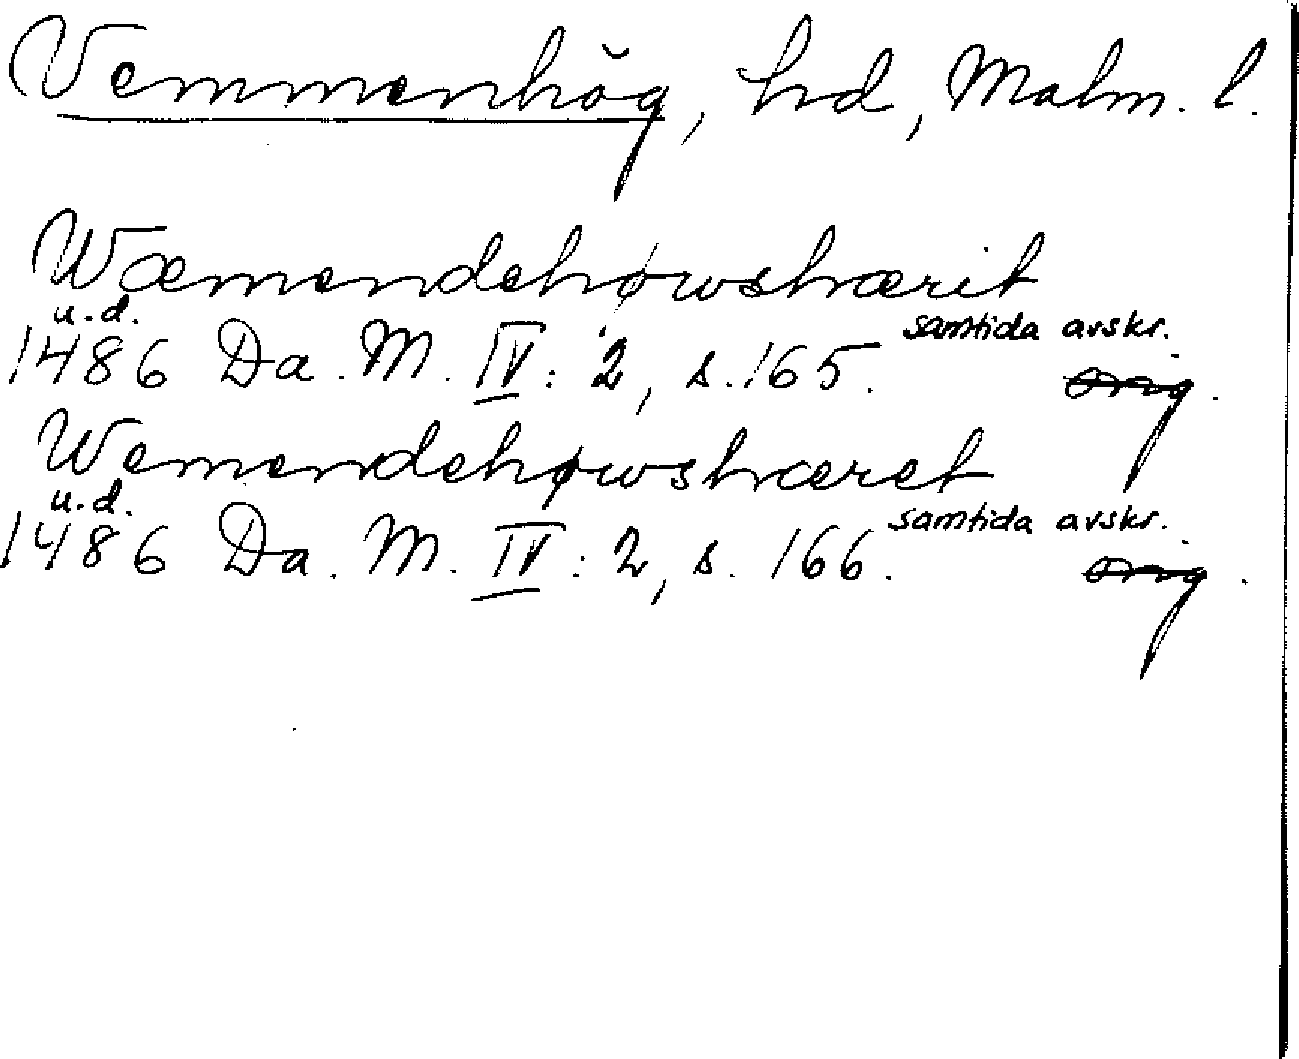 Vemmenhög, hd, Malm. l.
Wæmendehøwshærit
u.d.
samtida avskr.
1486 Da. M. IV: 2, s. 165. orig.
Wemendehøwshæret
u.d.
samtida avskr.
1486 Da. M. IV: 2, s. 166. orig.